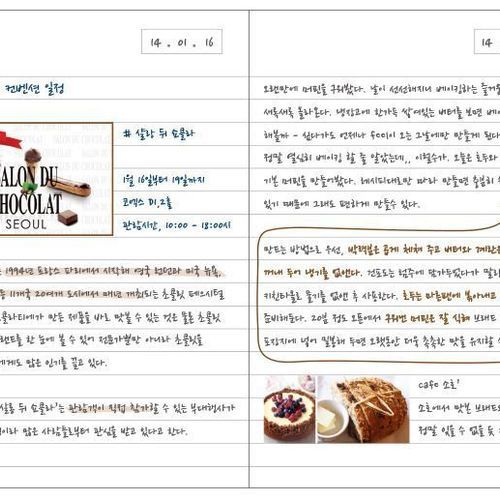 14 . 01 . 16
컨벤션 일정
# 살랑 뒤 쇼콜라
SALON DU
CHOCOLAT
SEOUL
1월 16일부터 19일까지
코엑스 D1,2홀
관람시간, 10:00 - 18:00시
1994년 프랑스 파리에서 시작해 영국 런던과 미국 뉴욕,
11개국 20여개 도시에서 매년 개최되는 초콜릿 페스티벌
만든 제품을 바로 맛볼 수 있는 것은 물론 초콜릿
한 눈에 볼 수 있어 전문가뿐만 아니라 초콜릿
많은 인기를 끌고 있다.
뒤 쇼콜라'는 관람객이 직접 참가할 수 있는 부대행사가
많은 사람들로부터 관심을 받고 있다고 한다.
14
오랜만에 머핀을 구워봤다. 날이 선선해지니 베이킹하는 즐거움
새록새록 올라온다. 냉장고에 한가득 쌓여있는 버터를 보면
해볼까 - 싶다가도 언제나 오는 그날에만 만들게 된다
정말 열심히 베이킹 할 줄 알았는데,, 오늘은 호두
기본 머핀을 만들어봤다. 레시피대로만 따라 만들면 충분히
있기 때문에 그래도 편하게 만들수 있다.
만드는 방법으로 우선, 박력분은 곱게 체쳐 주고 버터와 계란은
꺼내 두어 냉기를 없앤다. 건포도는 럼주에 담가두었다가
키친타올로 물기를 없앤 후 사용한다. 호두는 마른팬에 볶아내고
준비해둔다. 20분 정도 오븐에서 구워낸 머핀은 잘 식혀
포장지에 넣어 밀봉해 두면 오랫동안 더욱 촉촉한 맛을 유지할
cafe 소호'
소호에서 맛본 브레드
정말 잊을 수 없을 듯